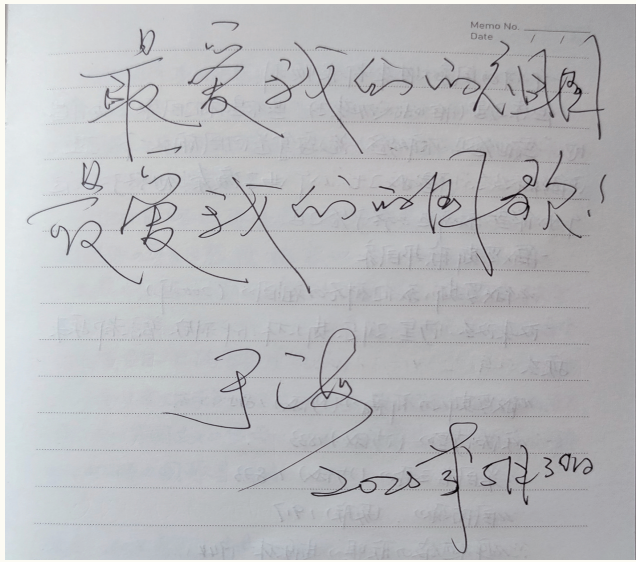 Memo No.
Date
最爱我们的祖国
最爱我们的国歌!
于海
2020年5月30日